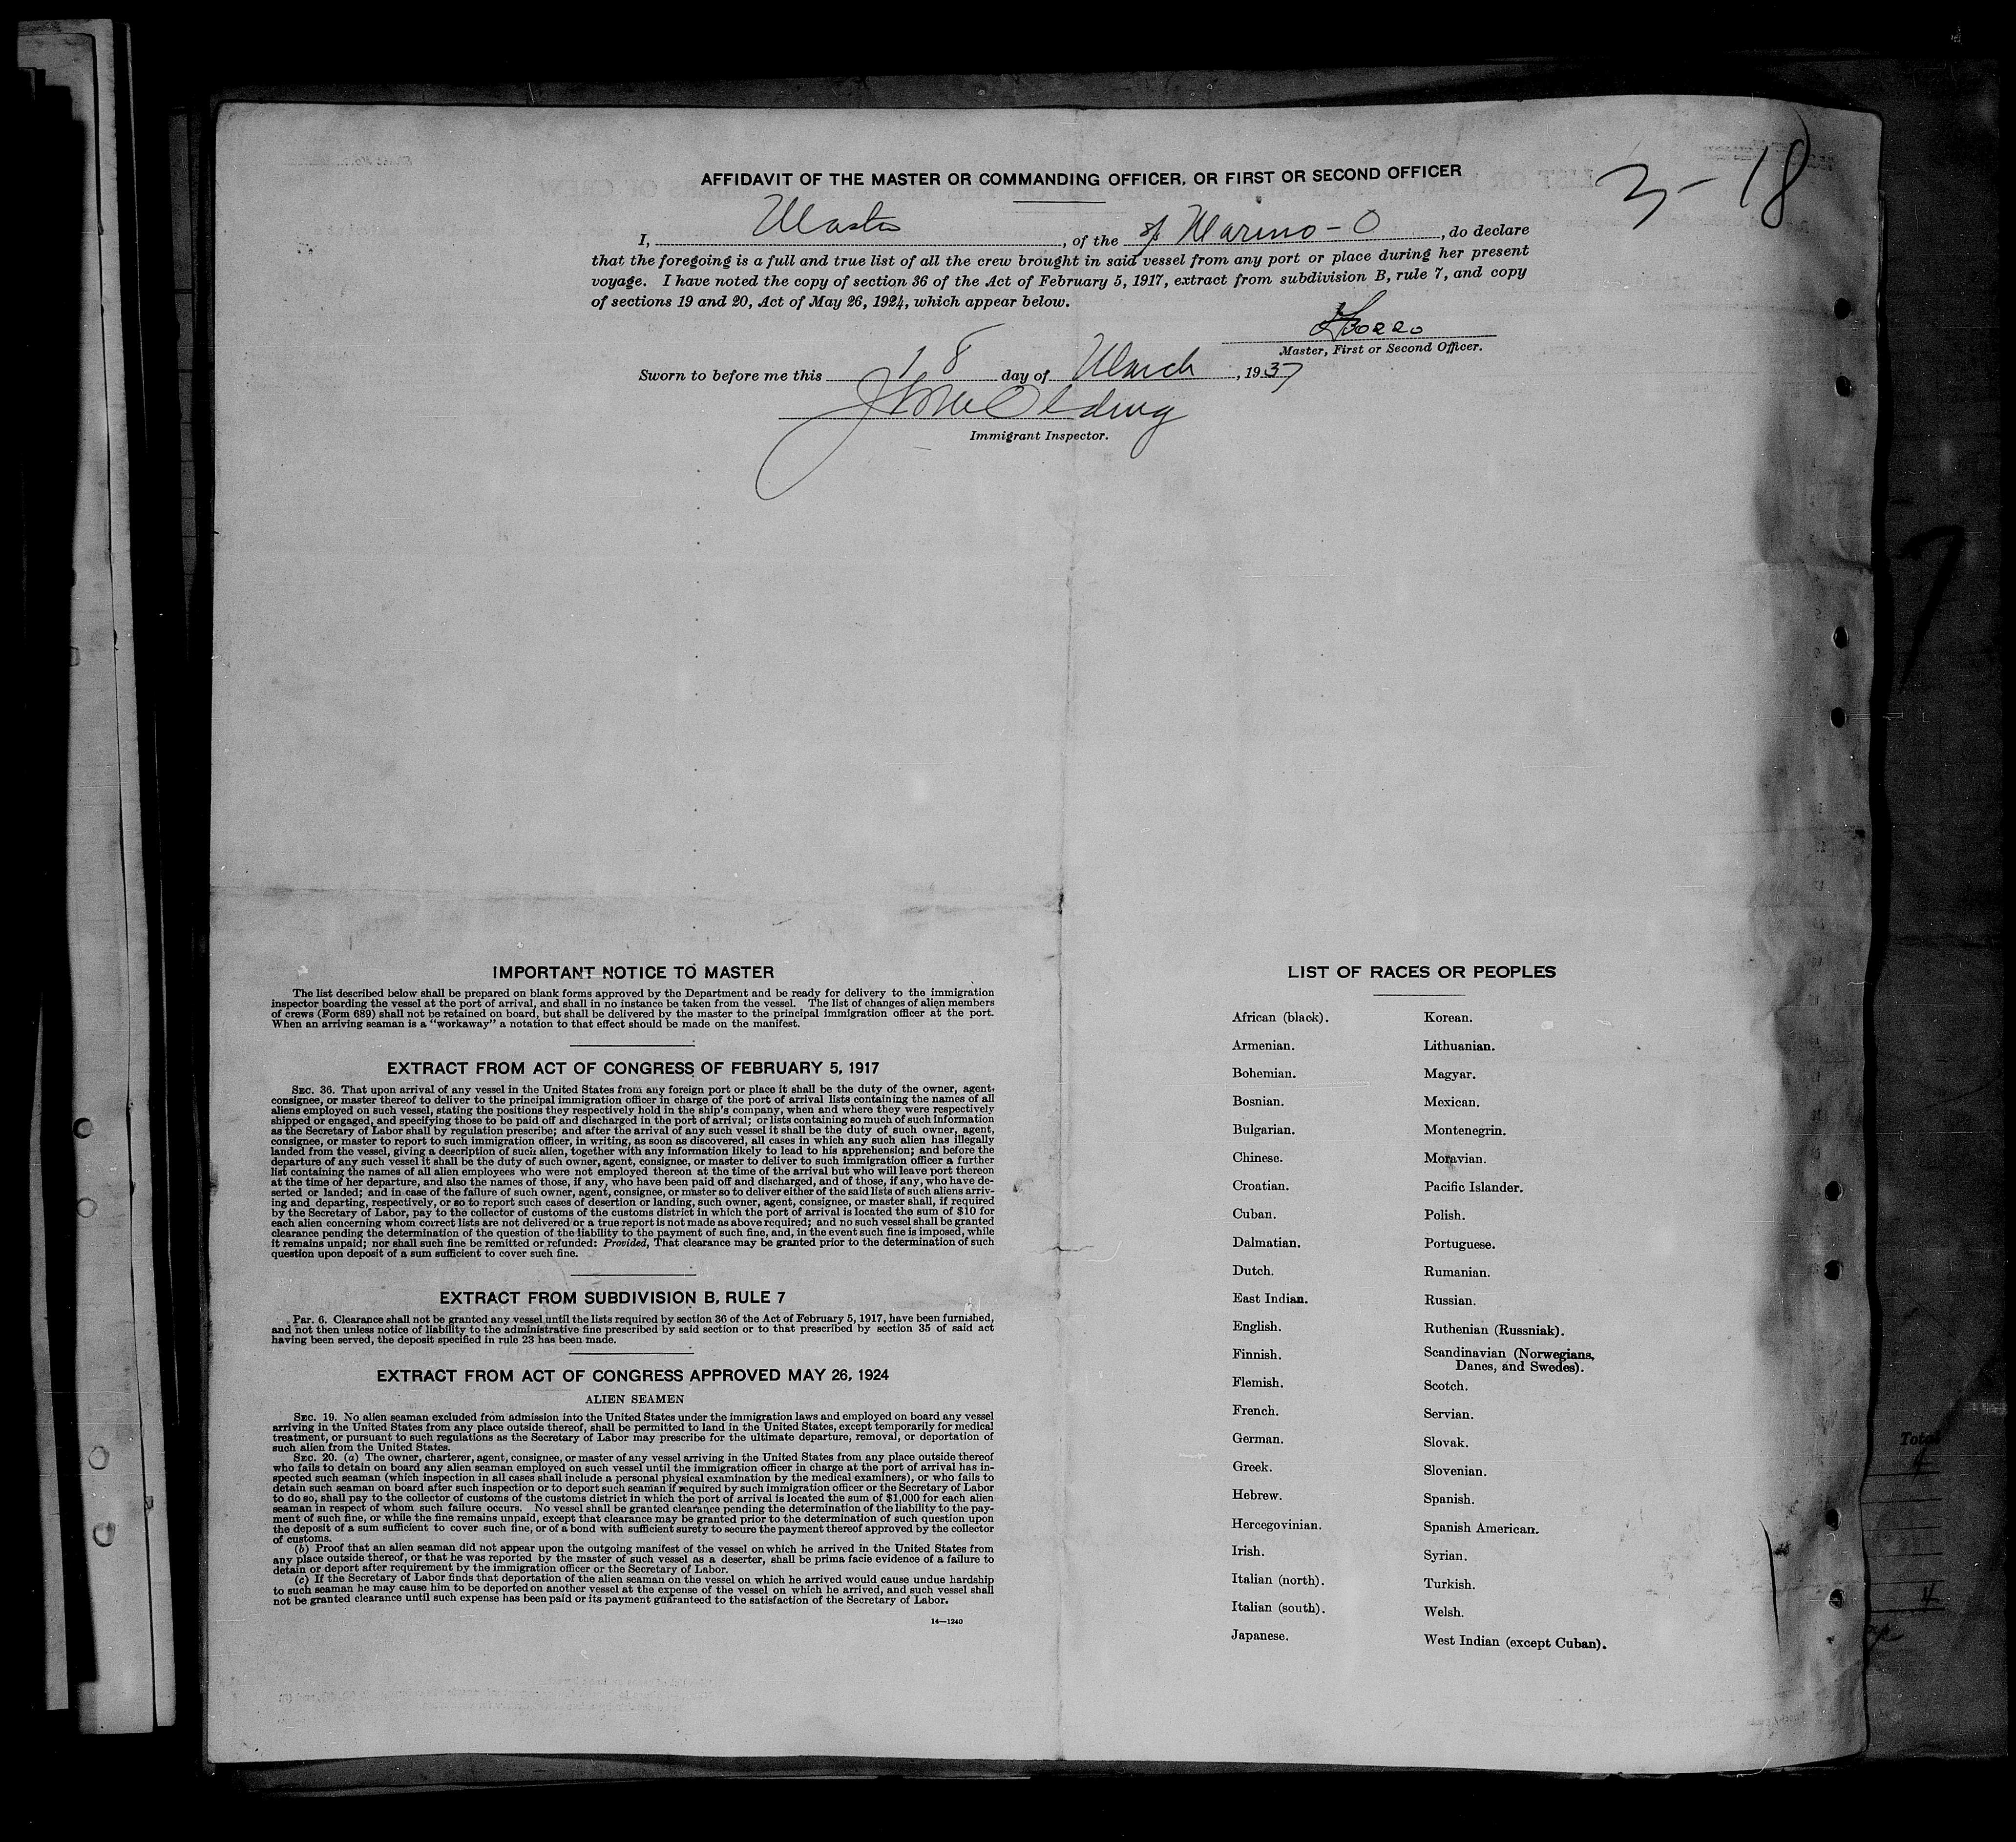 3-18
AFFIDAVIT OF THE MASTER OR COMMANDING OFFICER, OR FIRST OR SECOND OFFICER
I, Master, of the Marino-O, do declare
that the foregoing is a full and true list of all the crew brought in said vessel from any port or place during her present
voyage. I have noted the copy of section 36 of the Act of February 5, 1917, extract from subdivision B, rule 7, and copy
of sections 19 and 20, Act of May 26, 1924, which appear below.
Master, First or Second Officer.
Sworn to before me this 18 day of March, 1937
Immigrant Inspector.
IMPORTANT NOTICE TO MASTER
The list described below shall be prepared on blank forms approved by the Department and be ready for delivery to the immigration
inspector boarding the vessel at the port of arrival, and shall in no instance be taken from the vessel. The list of changes of alien members
of crews (Form 689) shall not be retained on board, but shall be delivered by the master to the principal immigration officer at the port.
When an arriving seaman is a "workaway" a notation to that effect should be made on the manifest.
EXTRACT FROM ACT OF CONGRESS OF FEBRUARY 5, 1917
SEC. 36. That upon arrival of any vessel in the United States from any foreign port or place it shall be the duty of the owner, agent,
consignee, or master thereof to deliver to the principal immigration officer in charge of the port of arrival lists containing the names of all
aliens employed on such vessel, stating the positions they respectively hold in the ship's company, when and where they were respectively
shipped or engaged, and specifying those to be paid off and discharged in the port of arrival; or lists containing so much of such information
as the Secretary of Labor shall by regulation prescribe; and after the arrival of any such vessel it shall be the duty of such owner, agent,
consignee, or master to report to such immigration officer, in writing, as soon as discovered, all cases in which any such alien has illegally
landed from the vessel, giving a description of such alien, together with any information likely to lead to his apprehension; and before the
departure of any such vessel it shall be the duty of such owner, agent, consignee, or master to deliver to such immigration officer a further
list containing the names of all alien employees who were not employed thereon at the time of the arrival but who will leave port thereon
at the time of her departure, and also the names of those, if any, who have been paid off and discharged, and of those, if any, who have de-
serted or landed; and in case of the failure of such owner, agent, consignee, or master so to deliver either of the said lists of such aliens arriv-
ing and departing, respectively, or so to report such cases of desertion or landing, such owner, agent, consignee, or master shall, if required
by the Secretary of Labor, pay to the collector of customs of the customs district in which the port of arrival is located the sum of $10 for
each alien concerning whom correct lists are not delivered or a true report is not made as above required; and no such vessel shall be granted
clearance pending the determination of the question of the liability to the payment of such fine, and, in the event such fine is imposed, while
it remains unpaid; nor shall such fine be remitted or refunded: Provided, That clearance may be granted prior to the determination of such
question upon deposit of a sum sufficient to cover such fine.
EXTRACT FROM SUBDIVISION B, RULE 7
Par. 6. Clearance shall not be granted any vessel until the lists required by section 36 of the Act of February 5, 1917, have been furnished,
and not then unless notice of liability to the administrative fine prescribed by said section or to that prescribed by section 35 of said act
having been served, the deposit specified in rule 23 has been made.
EXTRACT FROM ACT OF CONGRESS APPROVED MAY 26, 1924
ALIEN SEAMEN
SEC. 19. No alien seaman excluded from admission into the United States under the immigration laws and employed on board any vessel
arriving in the United States from any place outside thereof, shall be permitted to land in the United States, except temporarily for medical
treatment, or pursuant to such regulations as the Secretary of Labor may prescribe for the ultimate departure, removal, or deportation of
such alien from the United States.
SEC. 20. (a) The owner, charterer, agent, consignee, or master of any vessel arriving in the United States from any place outside thereof
who fails to detain on board any alien seaman employed on such vessel until the immigration officer in charge at the port of arrival has in-
spected such seaman (which inspection in all cases shall include a personal physical examination by the medical examiners), or who fails to
detain such seaman on board after such inspection or to deport such seaman if required by such immigration officer or the Secretary of Labor
to do so, shall pay to the collector of customs of the customs district in which the port of arrival is located the sum of $1,000 for each alien
seaman in respect of whom such failure occurs. No vessel shall be granted clearance pending the determination of the liability to the pay-
ment of such fine, or while the fine remains unpaid, except that clearance may be granted prior to the determination of such question upon
the deposit of a sum sufficient to cover such fine, or of a bond with sufficient surety to secure the payment thereof approved by the collector
of customs.
(b) Proof that an alien seaman did not appear upon the outgoing manifest of the vessel on which he arrived in the United States from
any place outside thereof, or that he was reported by the master of such vessel as a deserter, shall be prima facie evidence of a failure to
detain or deport after requirement by the immigration officer or the Secretary of Labor.
(c) If the Secretary of Labor finds that deportation of the alien seaman on the vessel on which he arrived would cause undue hardship
to such seaman he may cause him to be deported on another vessel at the expense of the vessel on which he arrived, and such vessel shall
not be granted clearance until such expense has been paid or its payment guaranteed to the satisfaction of the Secretary of Labor.
14—1240
LIST OF RACES OR PEOPLES
African (black).
Armenian.
Bohemian.
Bosnian.
Bulgarian.
Chinese.
Croatian.
Cuban.
Dalmatian.
Dutch.
East Indian.
English.
Finnish.
Flemish.
French.
German.
Greek.
Hebrew.
Hercegovinian.
Irish.
Italian (north).
Italian (south).
Japanese.
Korean.
Lithuanian.
Magyar.
Mexican.
Montenegrin.
Moravian.
Pacific Islander.
Polish.
Portuguese.
Rumanian.
Russian.
Ruthenian (Russniak).
Scandinavian (Norwegians,
Danes, and Swedes).
Scotch.
Servian.
Slovak.
Slovenian.
Spanish.
Spanish American.
Syrian.
Turkish.
Welsh.
West Indian (except Cuban).
Total